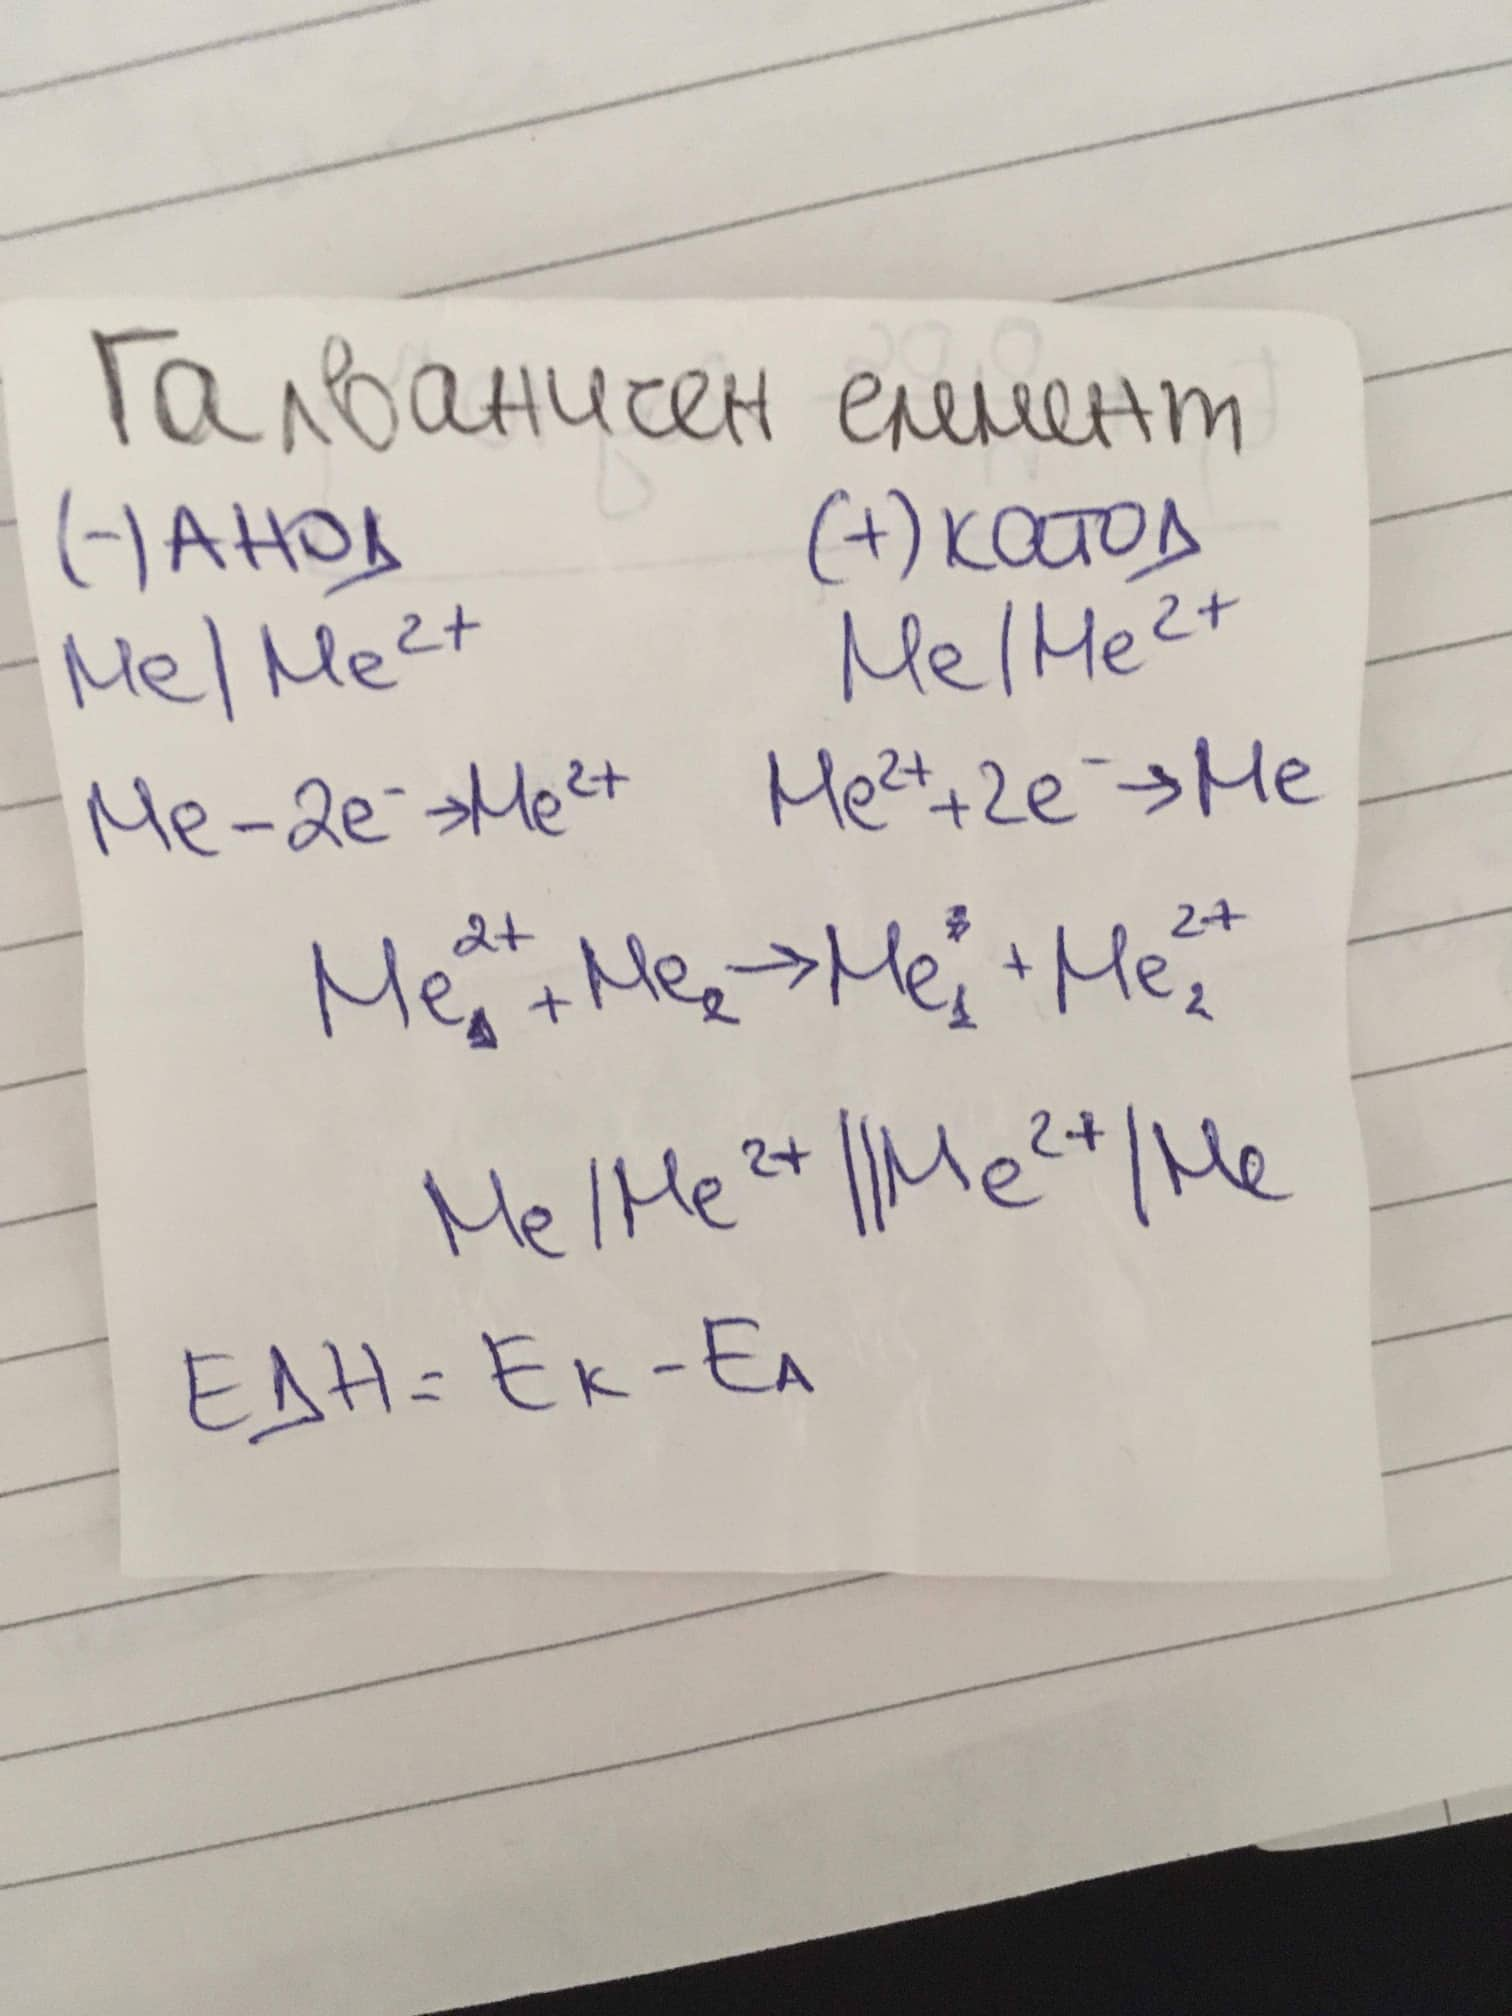 Галваничен елемент
(-) АНОД (+) КАТОД
Me/Me²⁺ Me/Me²⁺
Me - 2e⁻ → Me²⁺ Me²⁺ + 2e⁻ → Me
Me₁²⁺ + Me₂ → Me₁ + Me₂²⁺
Me/Me²⁺ || Me²⁺/Me
ЕДН = Eк - EА